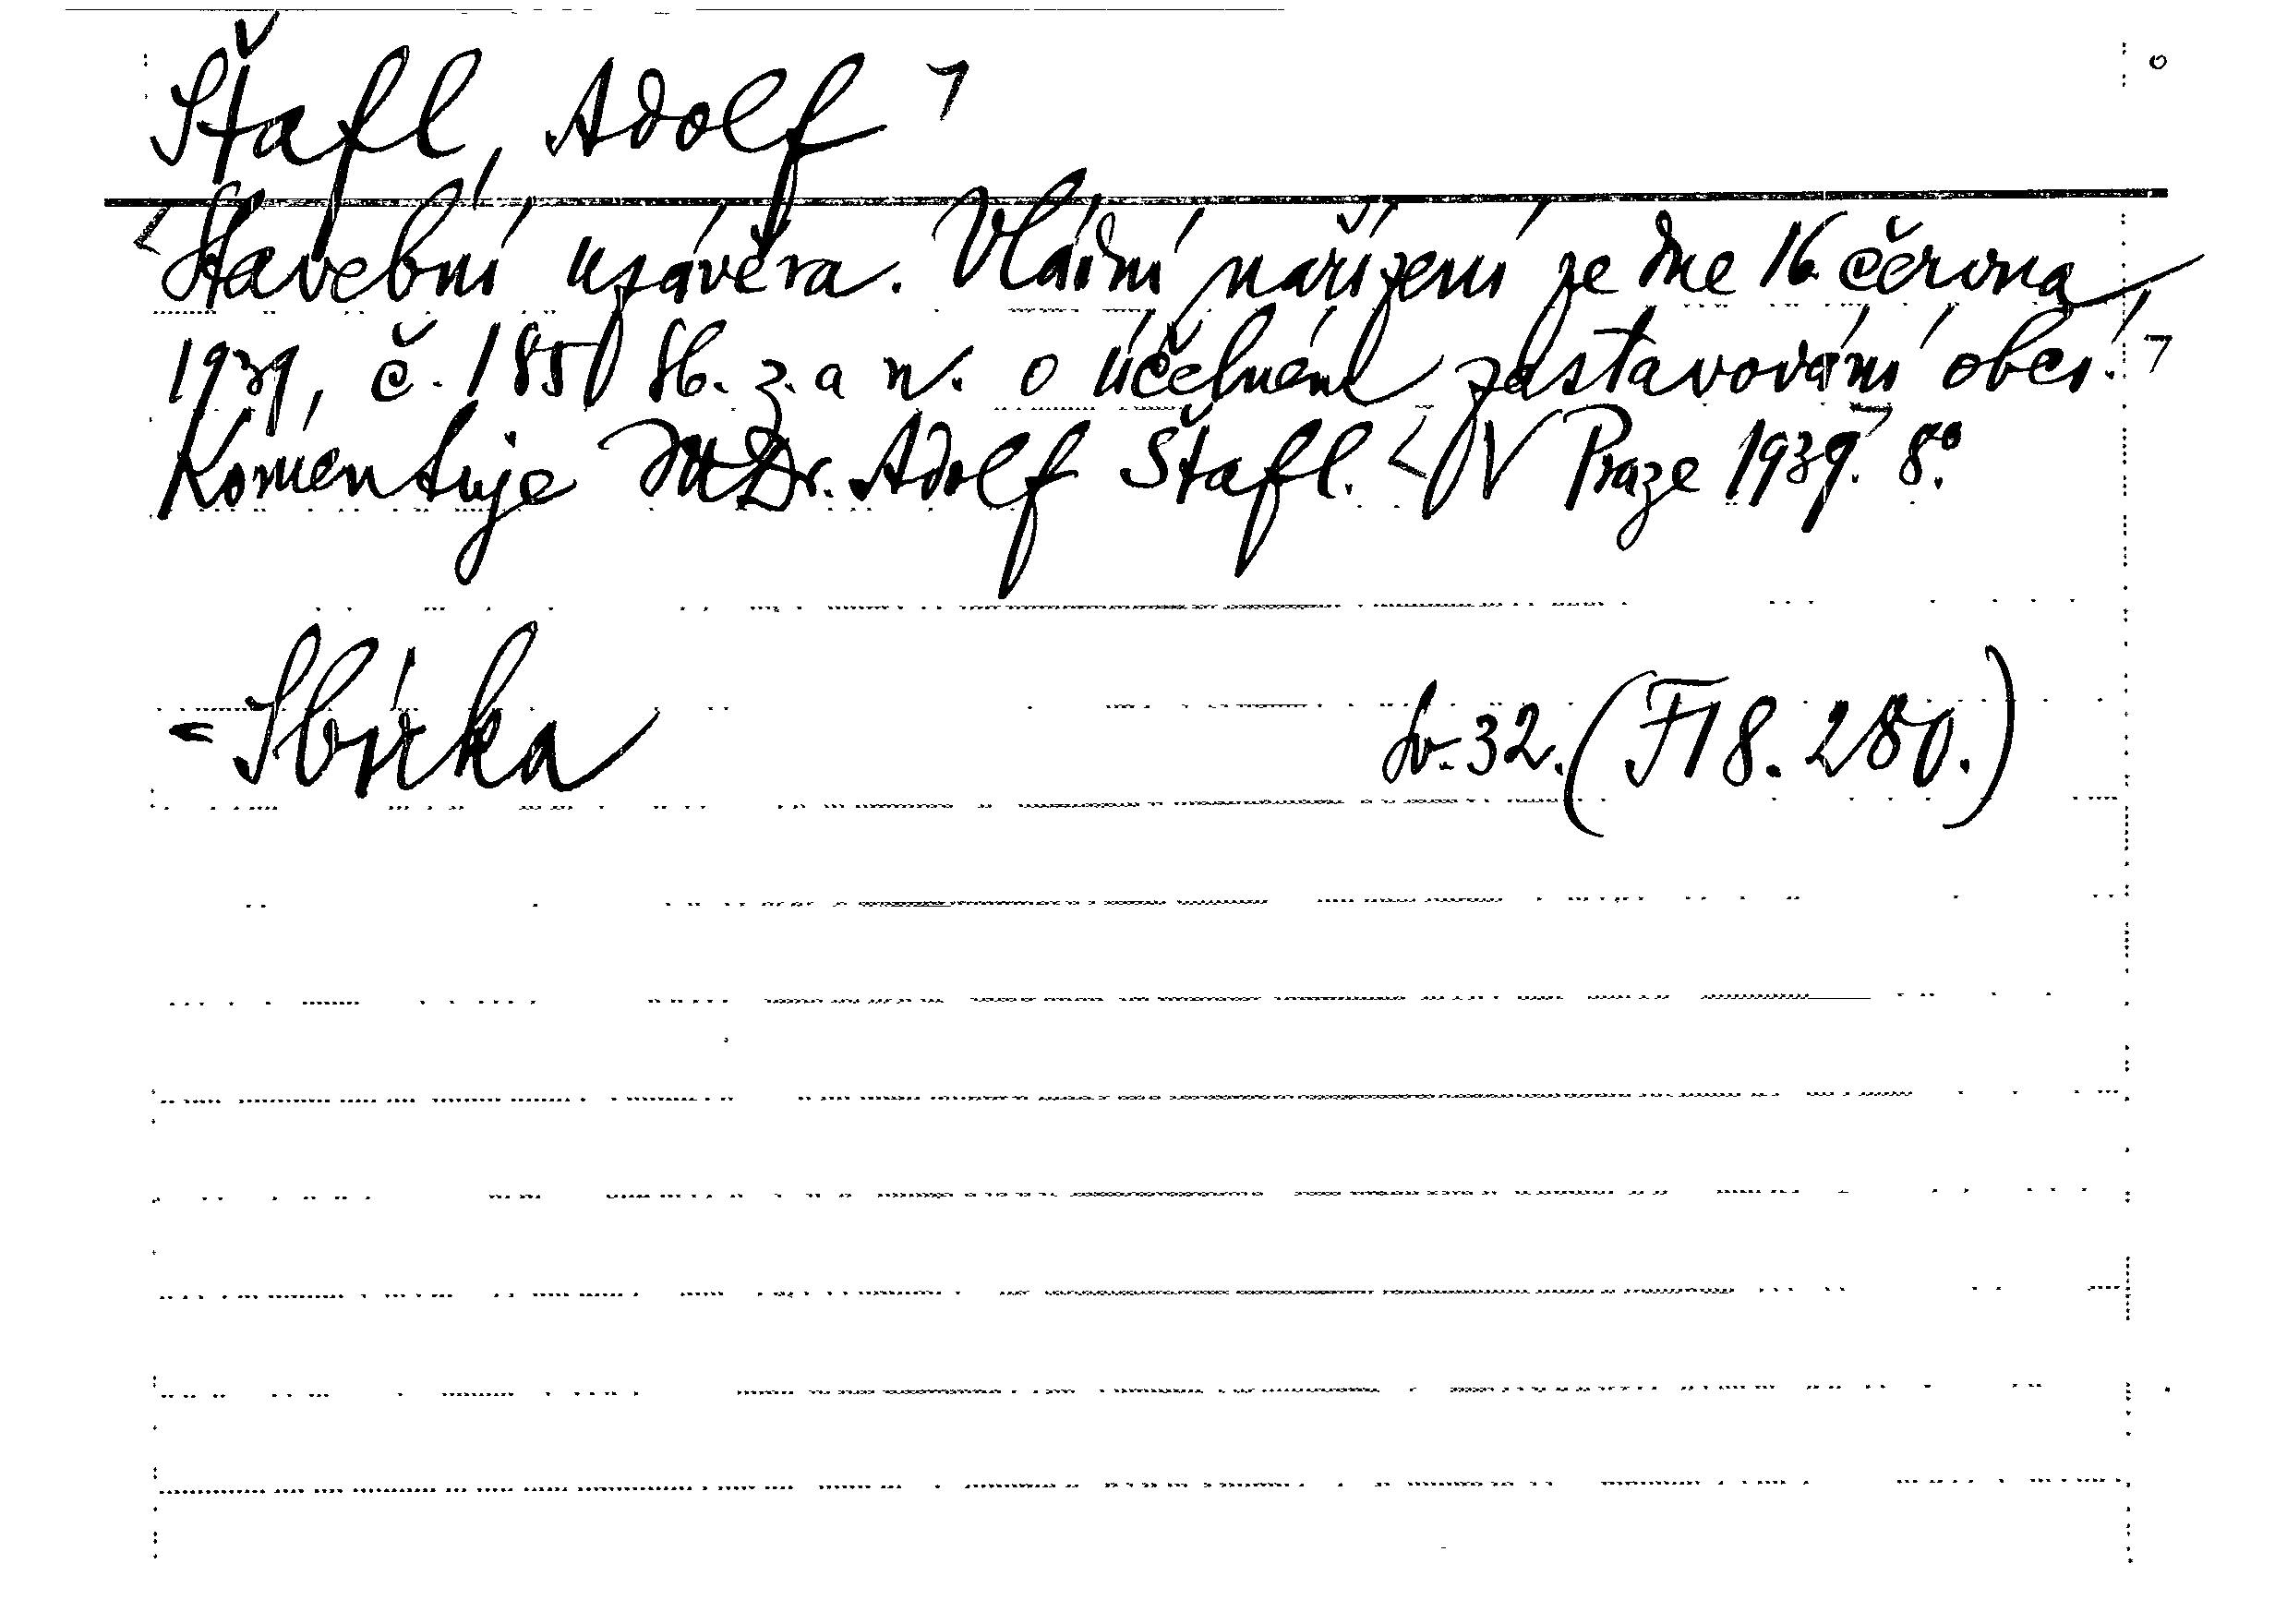 Štafl, Adolf
Stavební uzávěra. Vládní nařízení ze dne 16. června
1939, č. 185 Sb. z. a n. o účelném zastavování obcí.
Komentuje JUDr. Adolf Štafl. V Praze 1939. 8°.
= Sbírka sv. 32. (F 18. 280.)